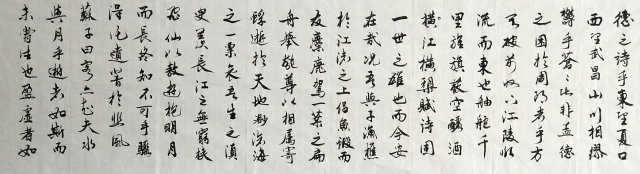 德之诗乎东望夏口
西望武昌山川相缪
郁乎苍々此非孟德
之困于周郎者乎方
其破荆州下江陵顺
流而东也舳舻千
里旌旗蔽空酾酒
横江横槊赋诗固
一世之雄也而今安
在哉况吾与子渔樵
于江渚之上侣鱼虾而
友麋鹿驾一叶之扁
舟举匏尊以相属寄
蜉蝣于天地渺沧海
之一粟哀吾生之须
臾羡长江之无穷挟
飞仙以遨游抱明月
而长终知不可乎骤
得托遗响于悲风
苏子曰客亦知夫水
与月乎逝者如斯而
未尝往也盈虚者如